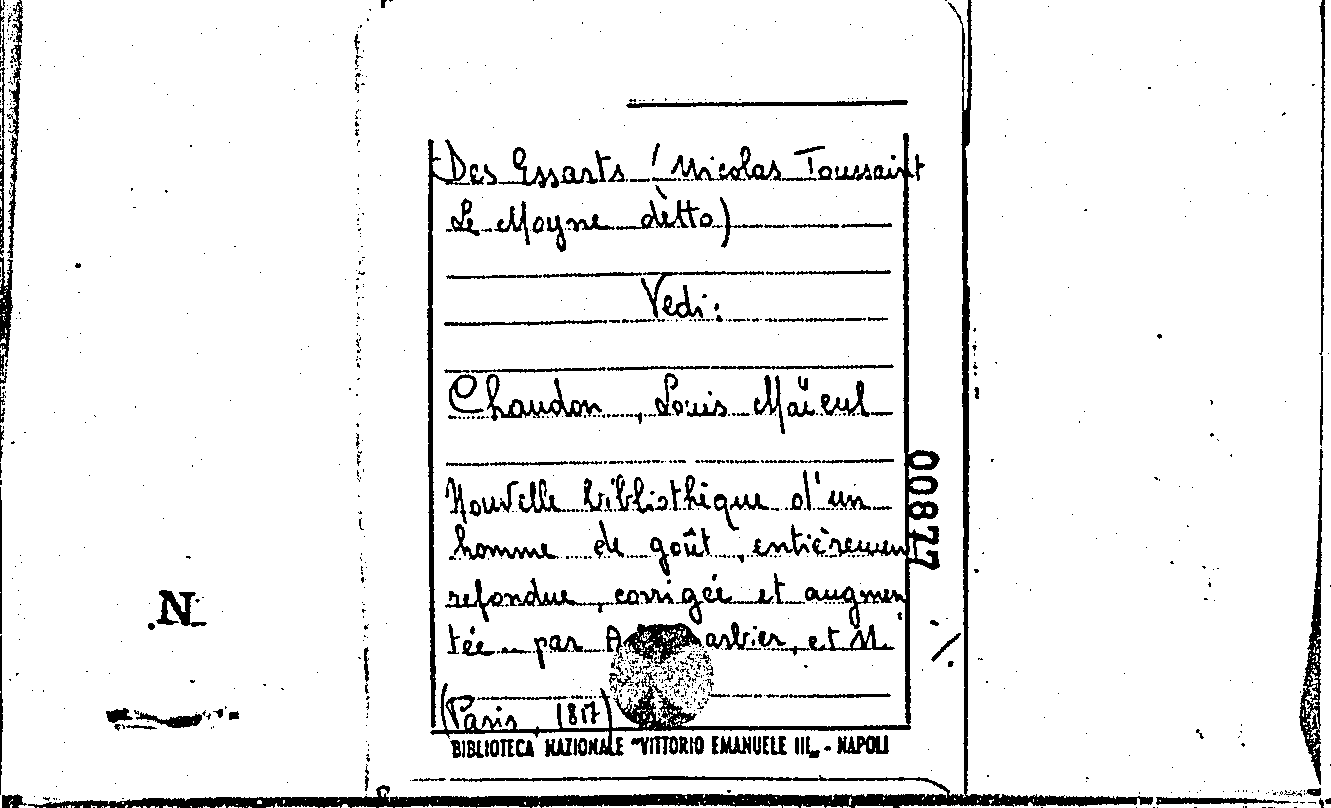 Des Essarts (Nicolas Toussaint
Le Moyne dètto)
Vedi:
Chaudon, Louis Maïeul
Nouvelle bibliothèque d'un
homme de goût, entièrement
refondue, corrigée et augmen
tée.. par A et M.
(Paris, 1817)
BIBLIOTECA NAZIONALE "VITTORIO EMANUELE III„ - NAPOLI
00877
.N.